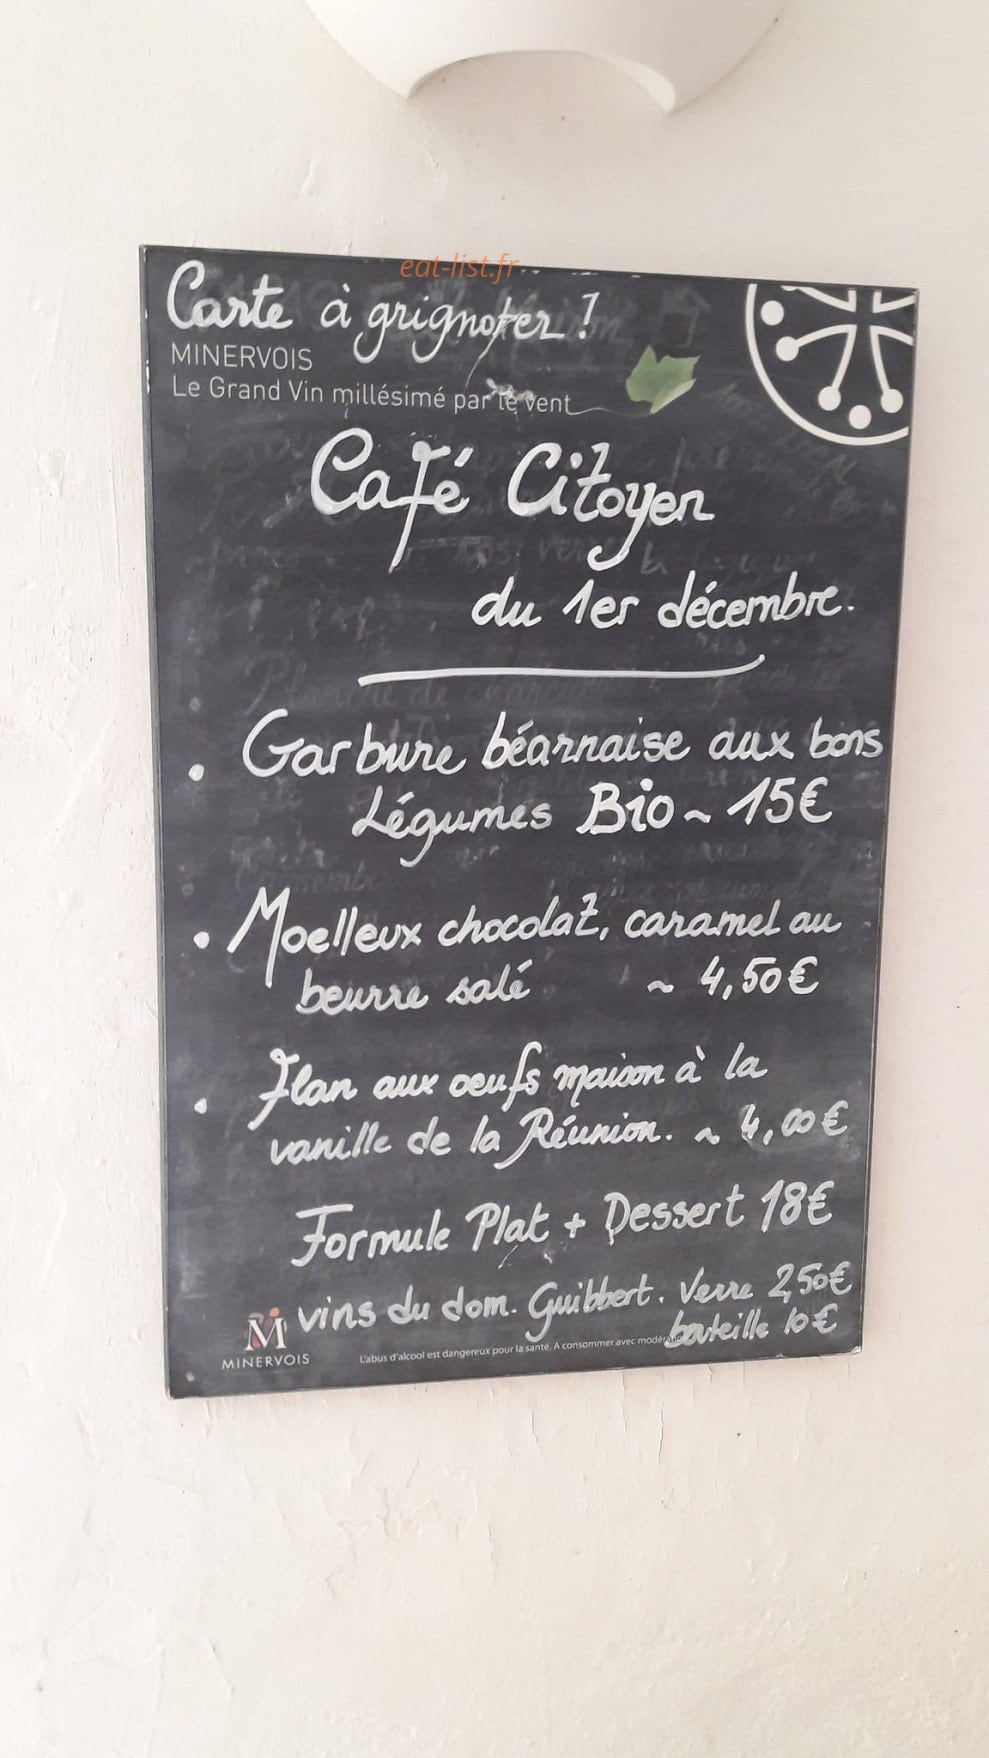 eat-list.fr
Carte à grignoter !
MINERVOIS
Le Grand Vin millésimé par le vent
Café Citoyen
du 1er décembre.
• Garbure béarnaise aux bons
Légumes Bio ~ 15€
• Moelleux chocolat, caramel au
beurre salé ~ 4,50€
• Flan aux oeufs maison à la
vanille de la Réunion. ~ 4,00€
Formule Plat + Dessert 18€
vins du dom. Guibbert. Verre 2,50€
bouteille 10€
MINERVOIS
L'abus d'alcool est dangereux pour la santé. A consommer avec